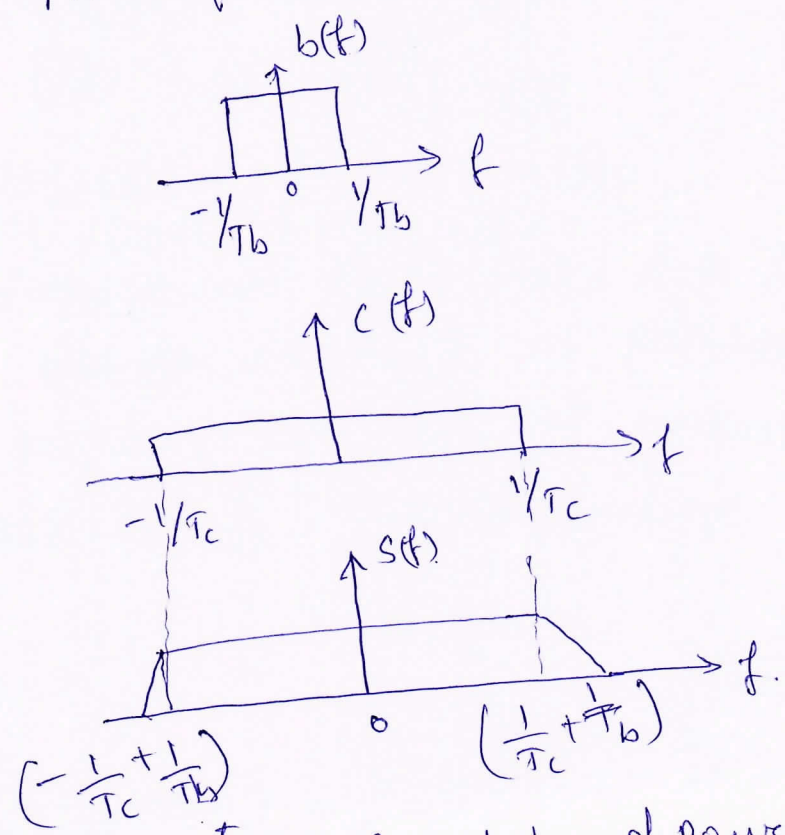 b(f)
f
-1/Tb 0 1/Tb
C(f)
f
-1/Tc 1/Tc
S(f)
f.
0
(-1/Tc + 1/Tb) (1/Tc + 1/Tb)